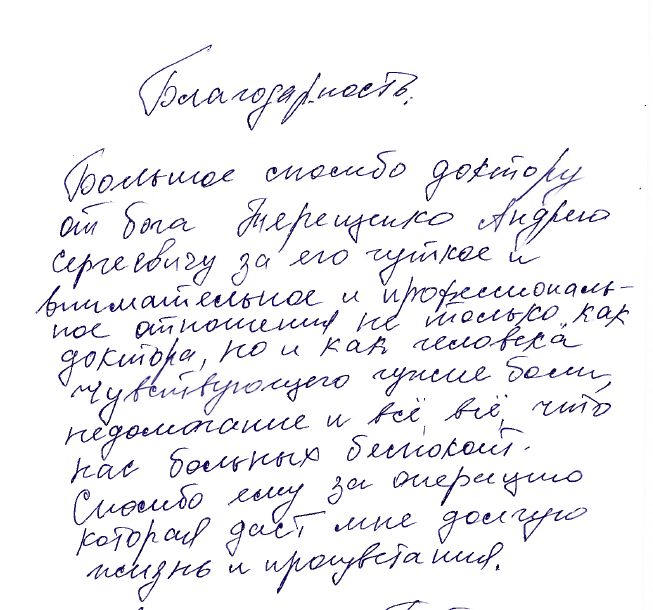 Благодарность.
Большое спасибо доктору
от бога Терещенко Андрею
Сергеевичу за его чуткое и
внимательное и профессиональ-
ное отношения не только как
доктора, но и как человека
чувствующего чужие боли,
недомогание и всё, всё, что
нас больных беспокоит.
Спасибо ему за операцию
которая даст мне долгую
жизнь и процветания.